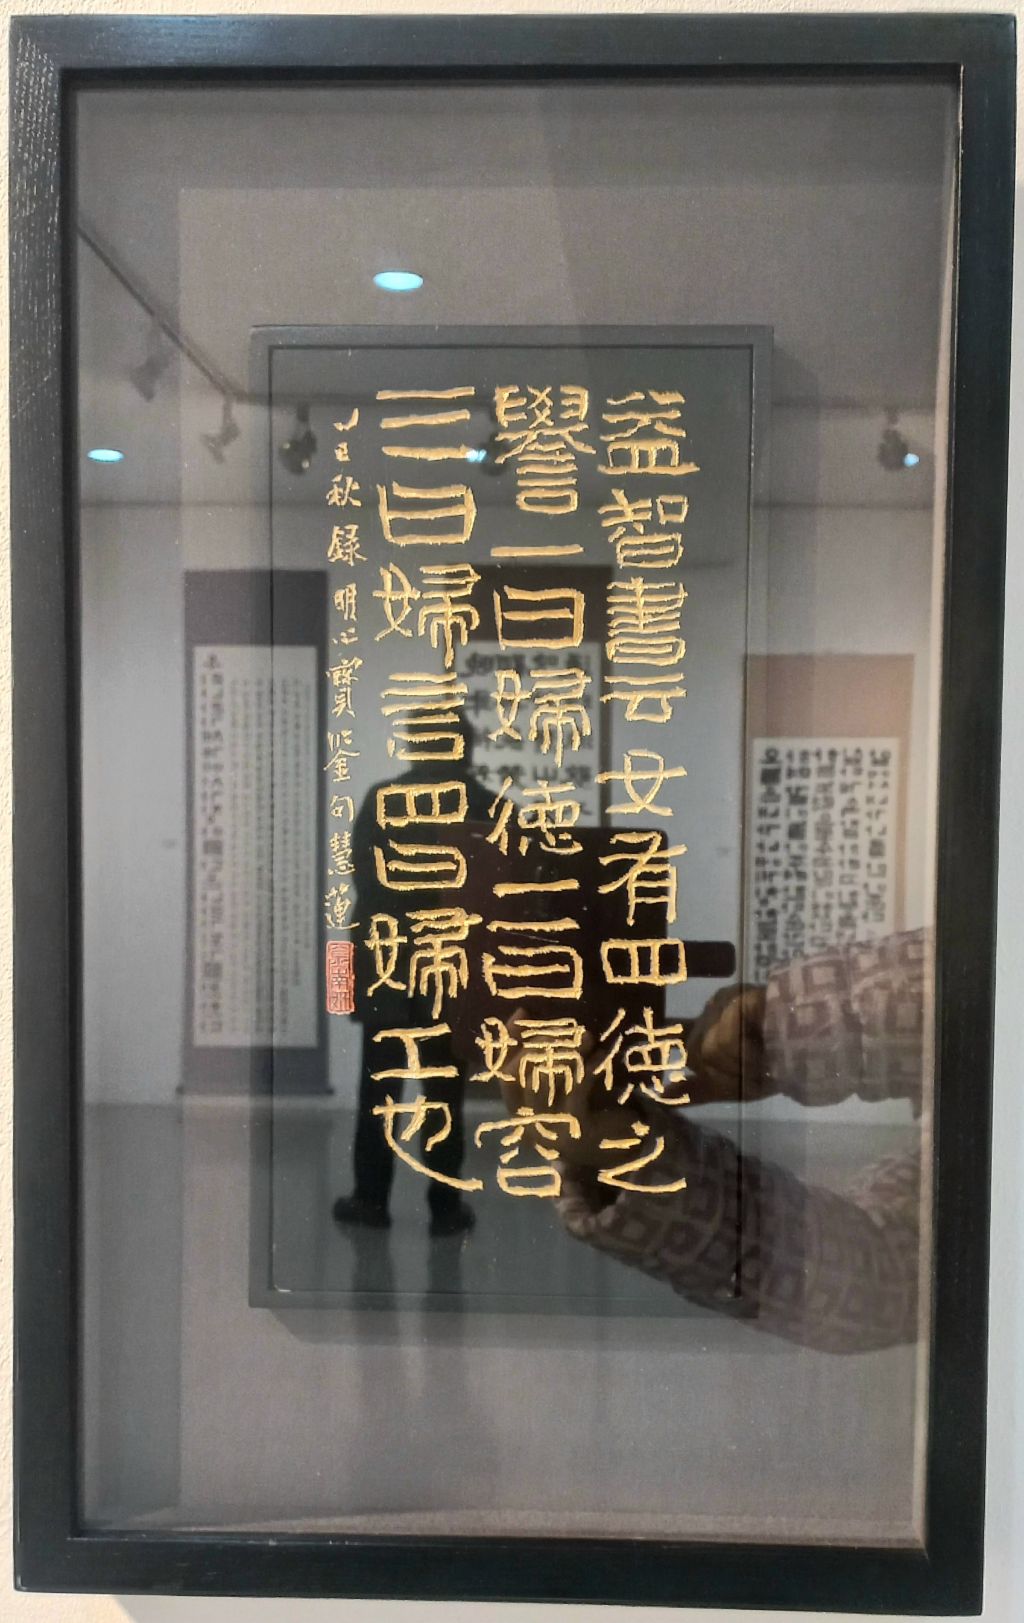 益智書云女有四德之
譽一曰婦德二曰婦容
三曰婦言四曰婦工也
秋録明心寶鑒句慧蓮